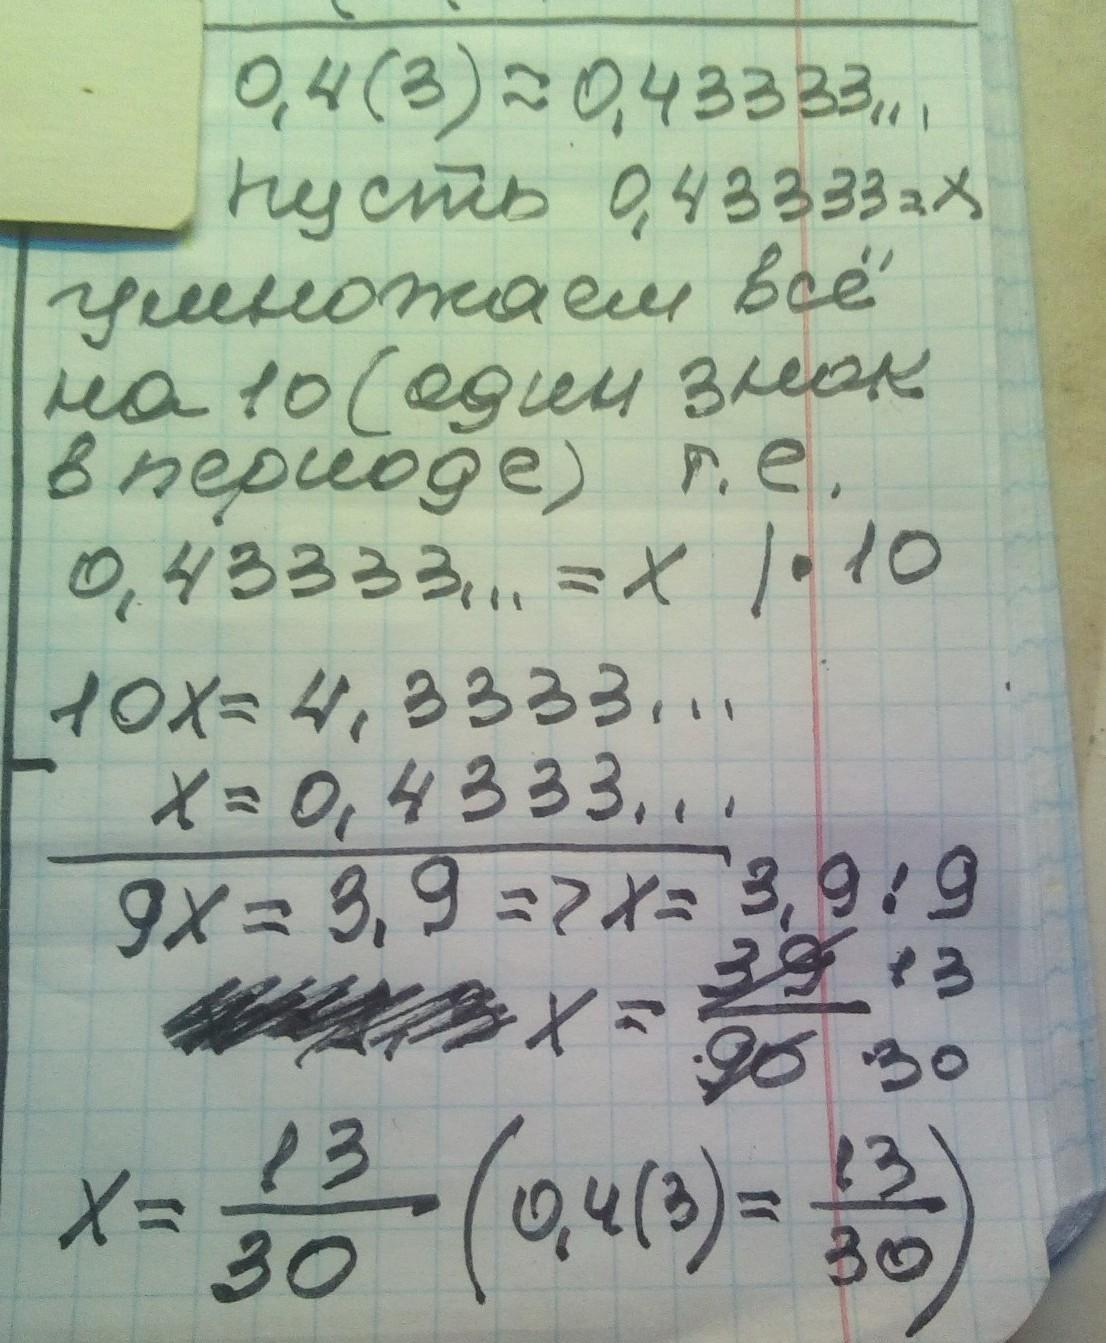 0,4(3) ≈ 0,43333...
пусть 0,43333=x
умножаем всё
на 10 (один знак
в периоде) т.е.
0,43333... = x |·10
10x = 4,3333...
x = 0,4333...
9x = 3,9 => x = 3,9 : 9
x = 39/90 13/30
x = 13/30 (0,4(3) = 13/30)